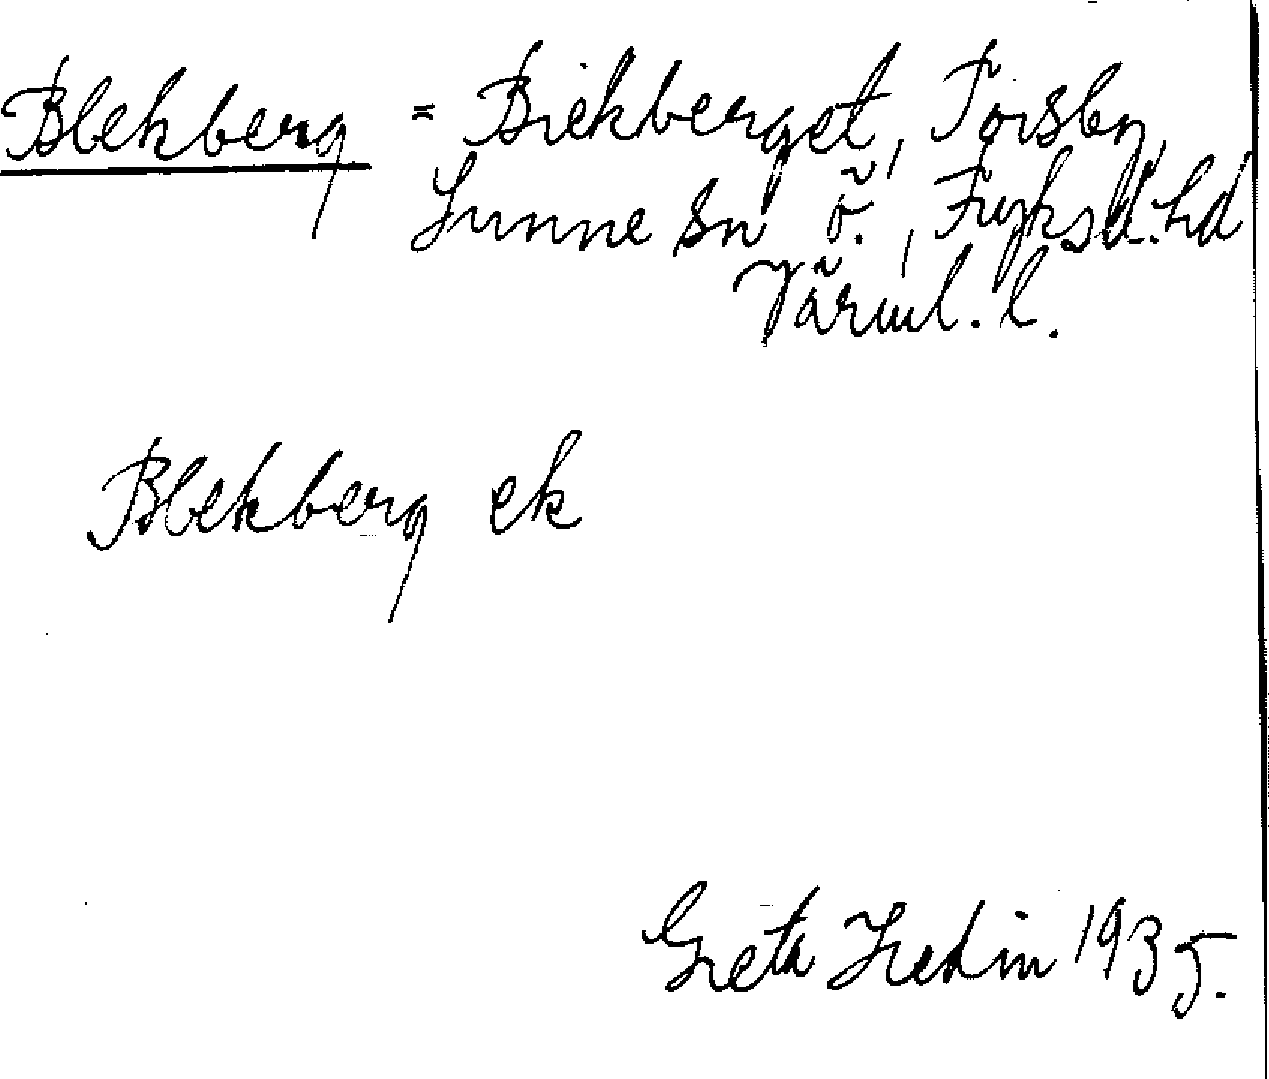 Blekberg = Björkberget, Torsby,
Sunne sn Ö., Fryksd. hd
Värml. l.
Blekberg ek
Greta Hedin 1935.